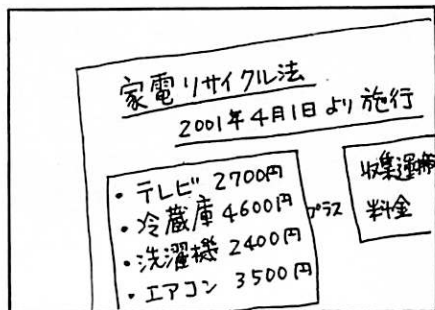 家電リサイクル法
2001年4月1日より施行
・テレビ 2700円
・冷蔵庫 4600円
・洗濯機 2400円
・エアコン 3500円
プラス
収集運搬
料金